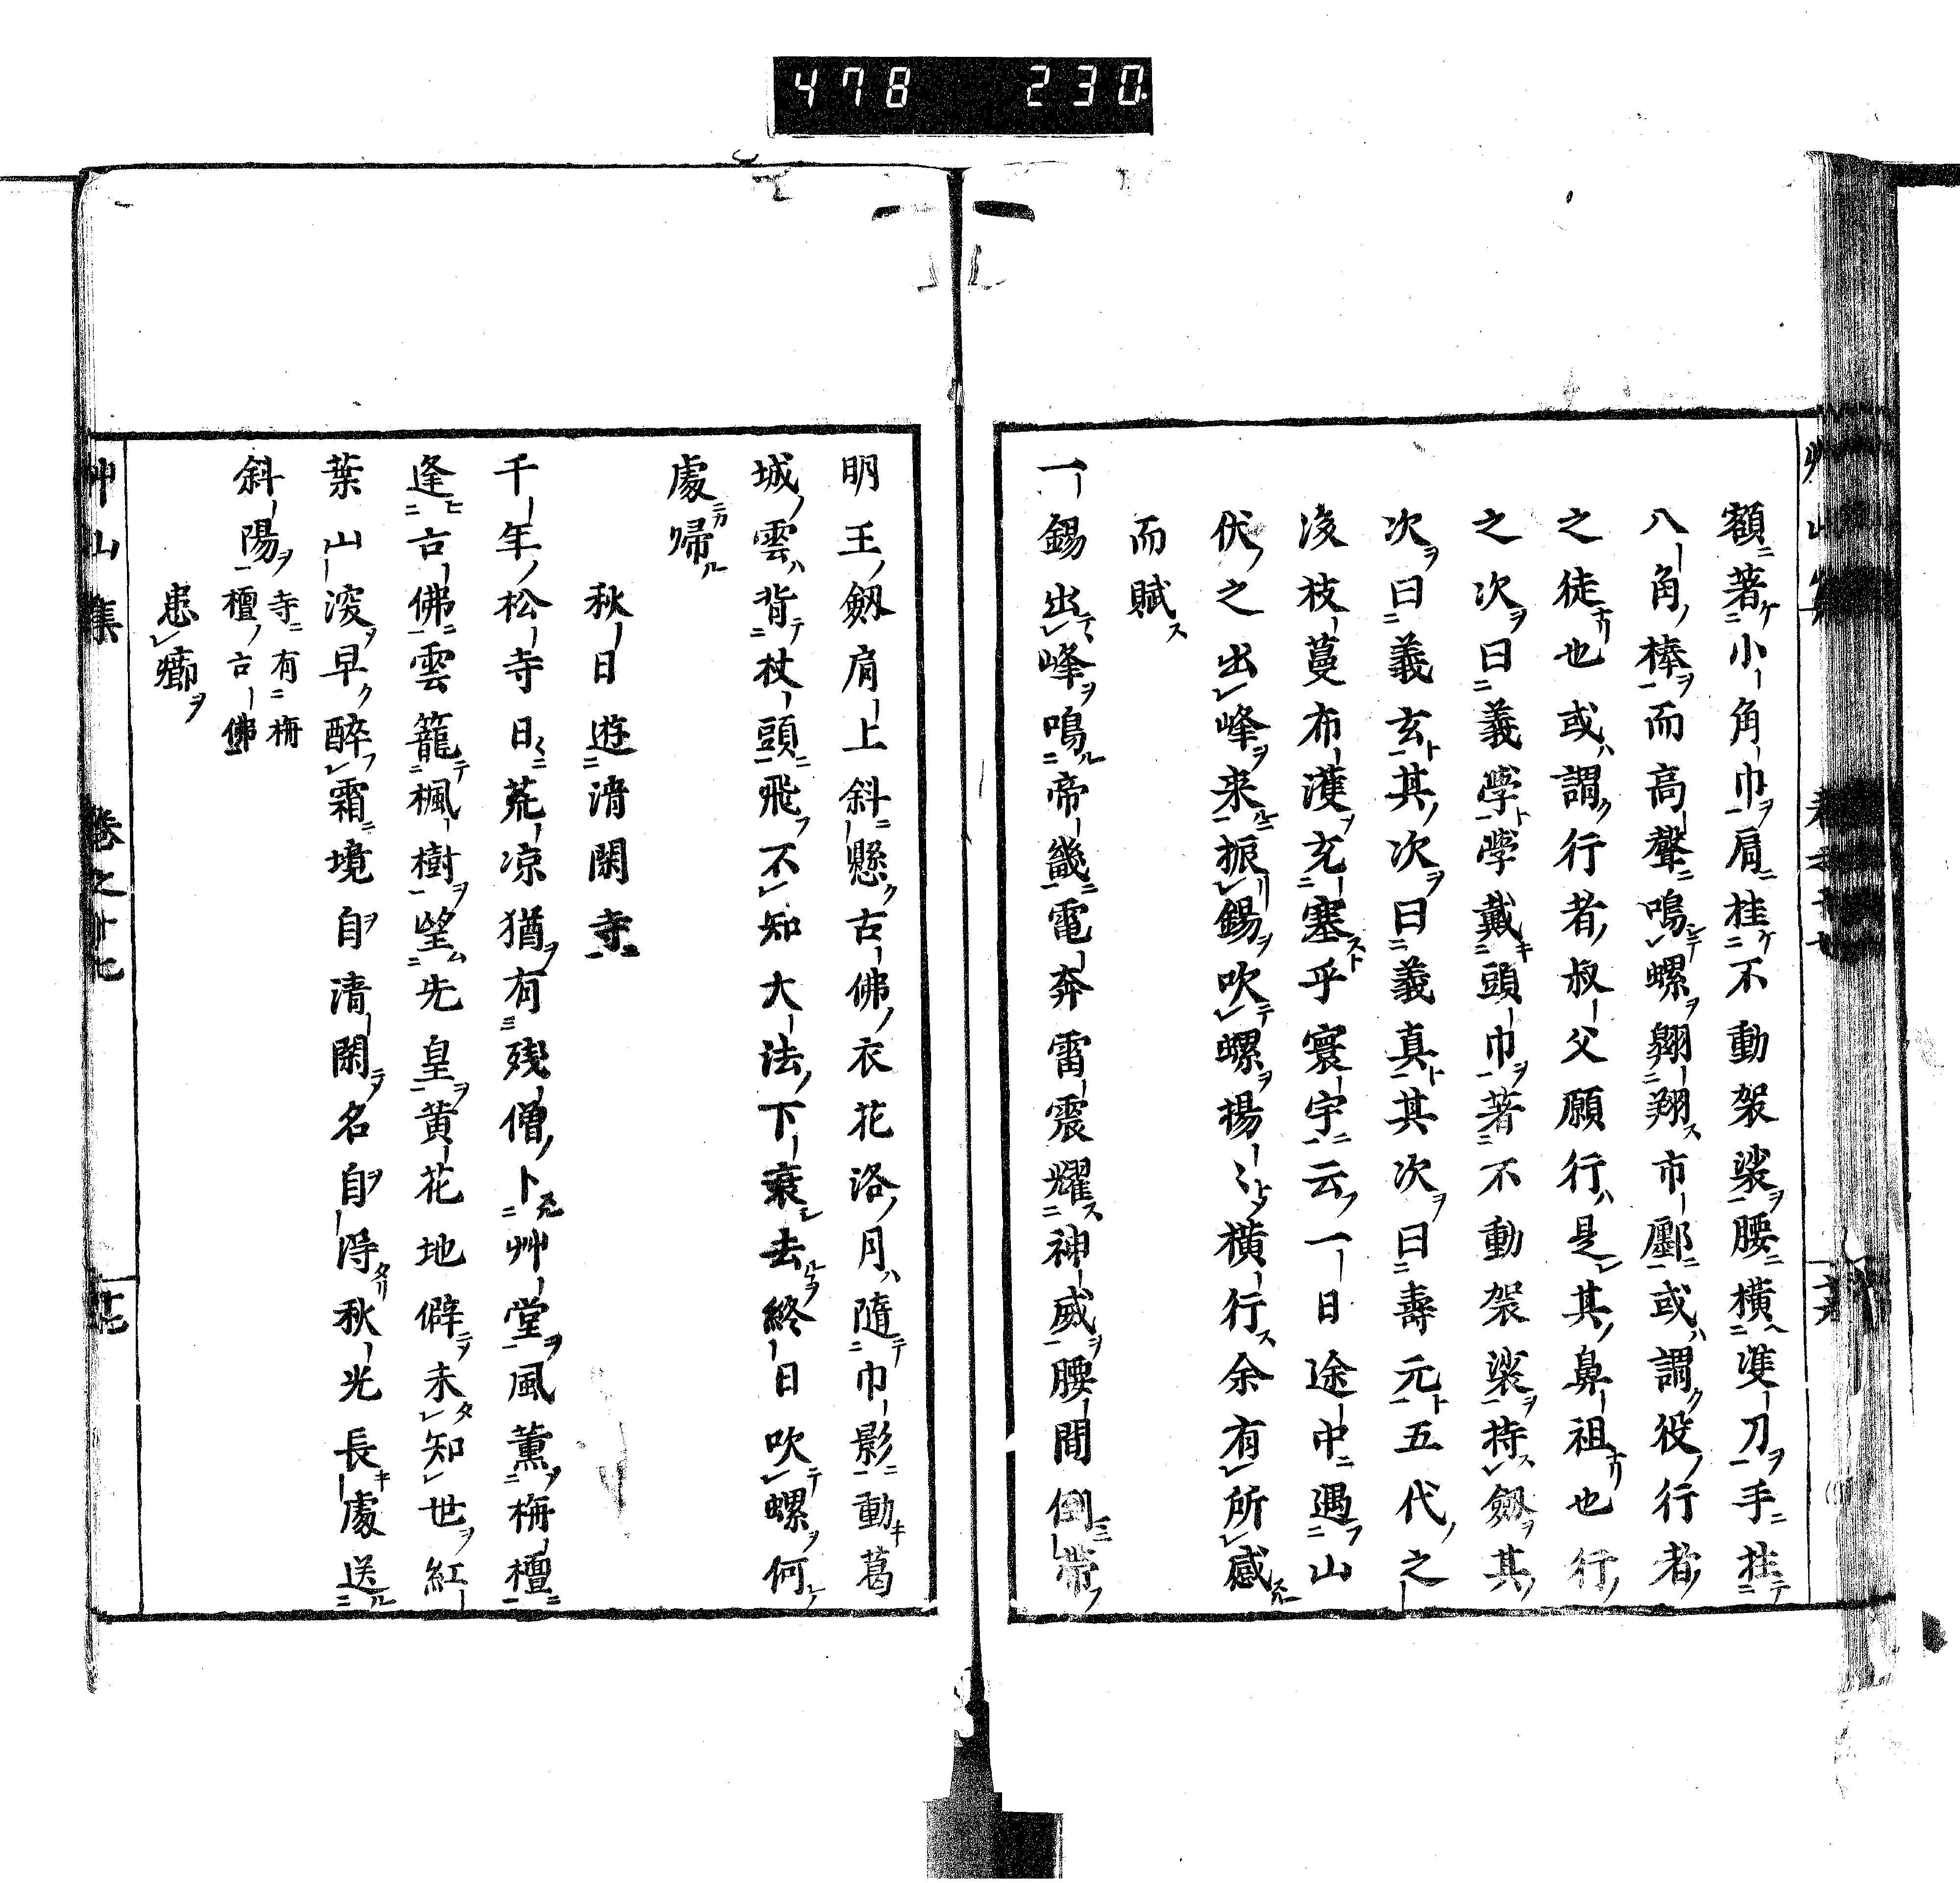 478 230
額著小角巾肩挂不動袈裟腰橫準刀手拄
八角棒而高聲鳴螺翺翔市廛或謂役行者
之徒也或謂行者叔父願行是其鼻祖也行
之次曰義學學戴頭巾著不動袈裟持劔其
次曰義玄其次曰義真其次曰壽元五代之
後枝蔓布濩充塞乎寰宇云一日途中遇山
伏之出峰来振錫吹螺揚〻橫行余有所感
而賦
一錫出峰鳴帝畿電奔雷震耀神威腰間倒帶
明王劔肩上斜懸古佛衣花洛月隨巾影動葛
城雲背杖頭飛不知大法下衰去終日吹螺何
處歸
秋日遊清閑寺
千年松寺日〻荒凉猶有殘僧卜艸堂風薰栴檀
逢古佛雲籠楓樹望先皇黄花地僻未知世紅
葉山深早醉霜境自清閑名自得秋光長處送
斜陽
寺有栴
檀古佛
患癤
艸山集 卷之十七 十七